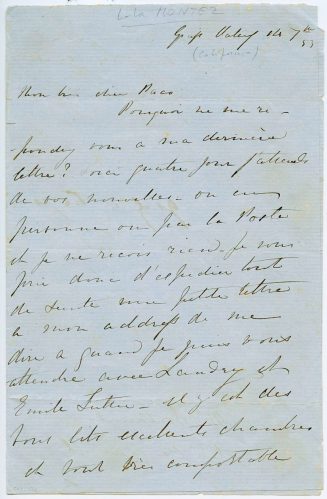 Lola MONTEZ
Grass Valley 14 7th
53
(California)
Mon bon cher
Pourquoi ne me ré-
pondez vous à ma dernière
lettre? voici quatre jours j'attends
de vos nouvelles - ou en
personne ou par la Poste
et je ne reçois rien. Je vous
prie donc d'expedier tout
de suite une petite lettre
a mon address de me
dire a quand je puis vous
attendre avec Landry et
Emile Sutter - il y a des
bons lits excellents chambres
et tout très comfortable